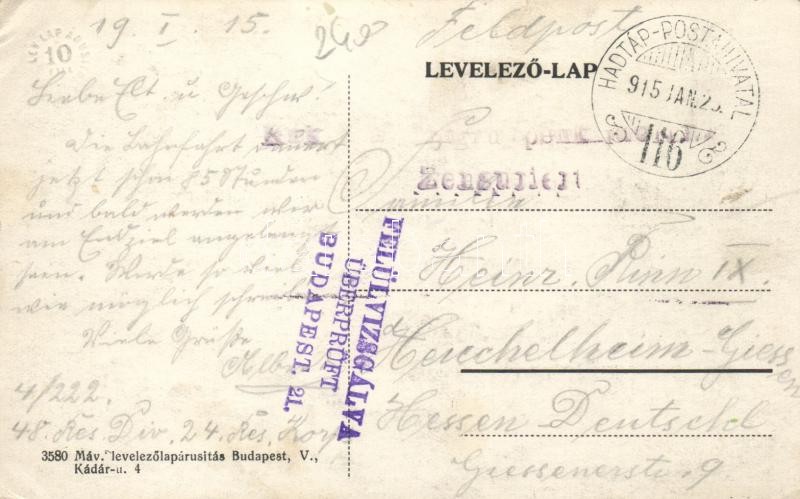 19. I. 15.
Feldpost
LEVELEZŐ-LAP
HADTÁP-POSTAHIVATAL
915 JAN. 23.
116
10
Liebe Elt. u. Geschw!
Die Bahnfahrt dauert
jetzt schon 85 Stunden
und bald werden wir
am Endziel angelangt
sein. Werde so viel
wie möglich schreiben
Viele Grüße
4/222.
48. Res. Div, 24. Res. Korp
Zensuriert
Familie
Heinr. Rinn IX.
Heuchelheim-Giessen
Hessen Deutschl
Giessenerstr. 9.
FELÜLVIZSGÁLVA
ÜBERPRÜFT
BUDAPEST. 21.
3580 Máv. levelezőlapárusitás Budapest, V.,
Kádár-u. 4